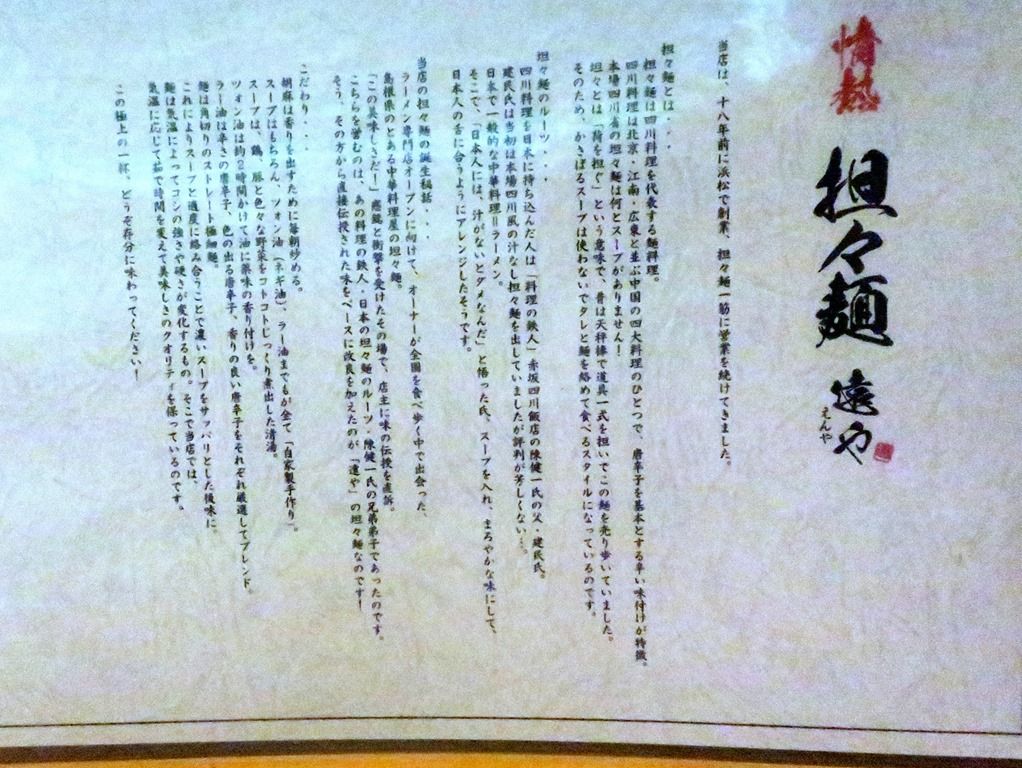 情熱 担々麺 遠や
えんや
当店は、十八年前に浜松で創業、担々麺一筋に営業を続けてきました。
担々麺とは・・・
担々麺は四川料理を代表する麺料理。
四川料理は北京・江南・広東と並ぶ中国の四大料理のひとつで、唐辛子を基本とする辛い味付けが特徴。
本場四川省の担々麺は何とスープがありません！
担々とは「荷を担ぐ」という意味で、昔は天秤棒で道具一式を担いでこの麺を売り歩いていました。
そのため、かさばるスープは使わないでタレと麺を絡めて食べるスタイルになっているのです。
担々麺のルーツ・・・
四川料理を日本に持ち込んだ人は「料理の鉄人」赤坂四川飯店の陳健一氏の父・建民氏。
建民氏は当初は本場四川風の汁なし担々麺を出していましたが評判が芳しくない…。
日本で一般的な中華料理＝ラーメン。
そこで、「日本人には、汁がないとダメなんだ」と悟った氏、スープを入れ、まろやかな味にして、
日本人の舌に合うようにアレンジしたそうです。
当店の担々麺の誕生秘話・・・
ラーメン専門店オープンに向けて、オーナーが全国を食べ歩く中で出会った、
島根県のとある中華料理屋の担々麺。
「この美味しさだ！」感銘と衝撃を受けたその場で、店主に味の伝授を直訴。
こちらを営むのは、あの料理の鉄人・日本の担々麺のルーツ・陳健一氏の兄弟弟子であったのです。
そう、その方から直接伝授された味をベースに改良を加えたのが「遠や」の担々麺なのです！
こだわり・・・
胡麻は香りを出すために毎朝炒める。
スープはもちろん、ツォン油（ネギ油）、ラー油までもが全て「自家製手作り」。
スープは、鶏、豚と色々な野菜をコトコトじっくり煮出した清湯。
ツォン油は約2時間かけて油に薬味の香り付けを。
ラー油は辛さの唐辛子、色の出る唐辛子、香りの良い唐辛子をそれぞれ厳選してブレンド。
麺は角切りのストレート極細麺。
これによりスープと適度に絡み合うことで濃いスープをサッパリとした後味に。
麺は気温によってコシの強さや硬さが変化するもの。そこで当店では、
気温に応じて茹で時間を変えて美味しさのクオリティを保っているのです。
この極上の一杯、どうぞ存分に味わってください！